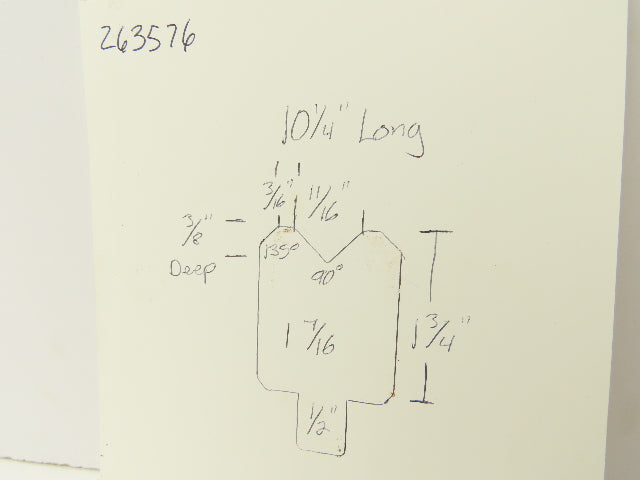 263576
10 1/4" Long
3/16" 11/16"
3/8"
Deep
135°
90°
1 7/16
1 3/4"
1/2"